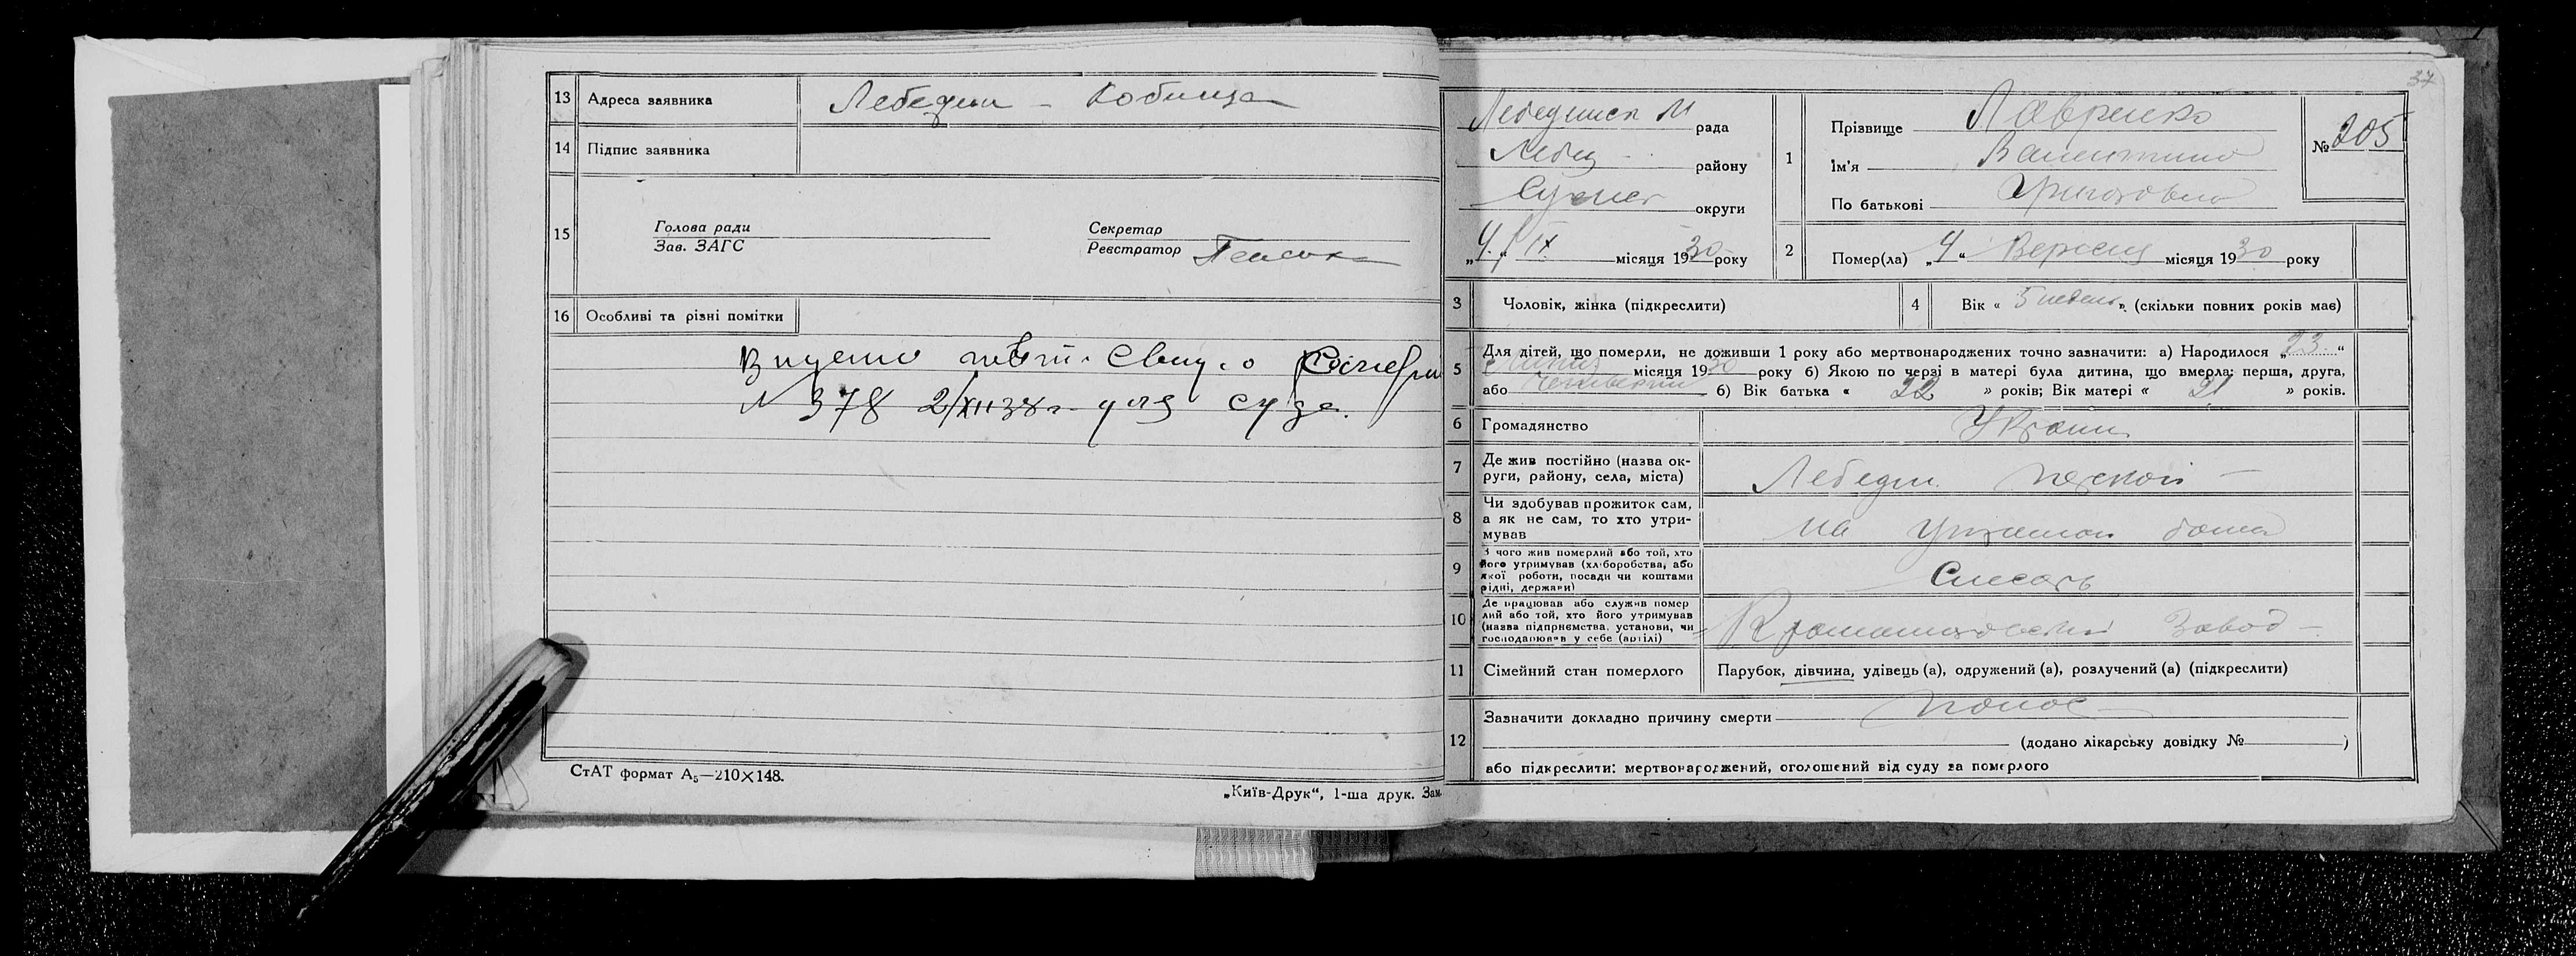 13 Адреса заявника Лебедин - Кобижча
14 Підпис заявника
15 Голова ради Секретар
Зав. ЗАГС Реєстратор
16 Особливі та різні помітки
№ 378 2/XII 38 г. для суда.
СтАТ формат А₅—210×148.
„Київ-Друк“, 1-ша друк. Зам.
37
Лебединськ М рада
Лебед району
Сумськ округи
„4.“ IX місяця 1930 року
1 Прізвище Лавренко
Ім'я Валентина
По батькові Григоровна
№ 205
2 Помер(ла) „4“ Вересня місяця 1930 року
3 Чоловік, жінка (підкреслити)
4 Вік « 5 недель » (скільки повних років має)
5 Для дітей, що померли, не доживши 1 року або мертвонароджених точно зазначити: а) Народилося „23.“
місяця 1930 року б) Якою по черзі в матері була дитина, що вмерла: перша, друга,
або четверта б) Вік батька « 22 » років; Вік матері « 21 » років.
6 Громадянство Україн
7 Де жив постійно (назва округи, району, села, міста) Лебедин
8 Чи здобував прожиток сам, а як не сам, то хто утримував на утриман батька
9 З чого жив померлий або той, хто його утримував (хліборобства, або якої роботи, посади чи коштами рідні, держави) Слесарь
10 Де працював або служив померлий або той, хто його утримував (назва підприємства, установи, чи господарював у себе (артілі) Краматоровский Завод
11 Сімейний стан померлого Парубок, дівчина, удівець (а), одружений (а), розлучений (а) (підкреслити)
12 Зазначити докладно причину смерти понос
(додано лікарську довідку № )
або підкреслити: мертвонароджений, оголошений від суду за померлого